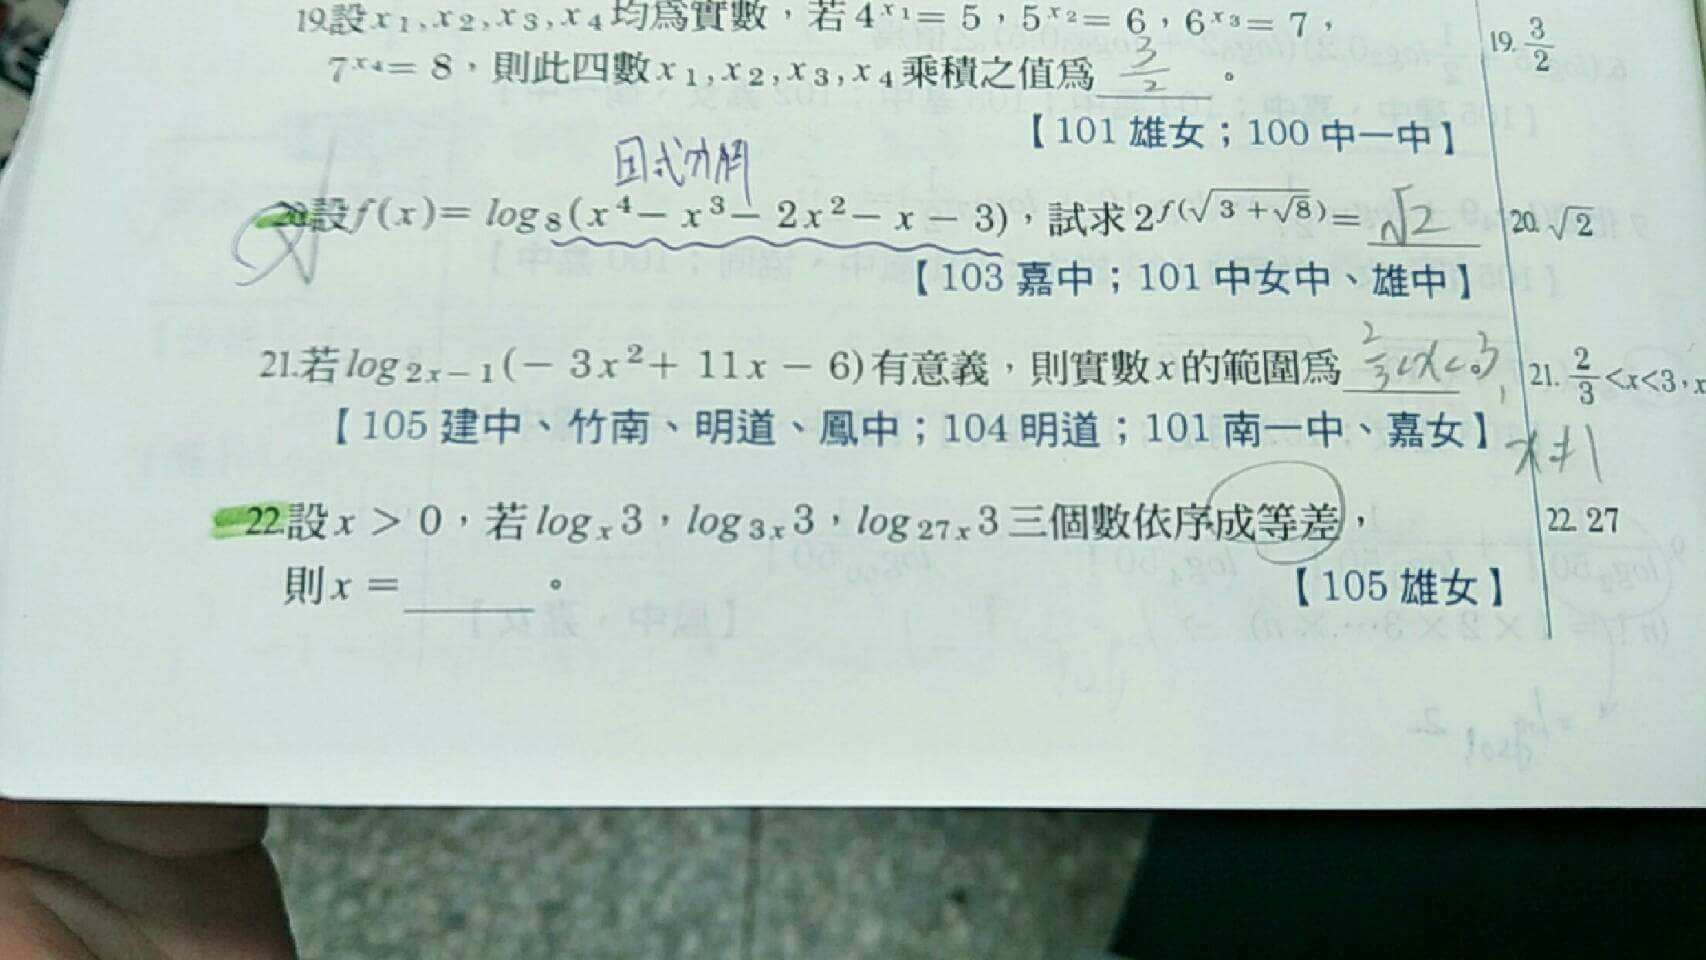 19.設x₁,x₂,x₃,x₄均為實數，若4^x₁=5，5^x₂=6，6^x₃=7，
7^x₄=8，則此四數x₁,x₂,x₃,x₄乘積之值為 3/2 。
19. 3/2
【101雄女；100中一中】
因式分解
20.設f(x)=log₈(x⁴－x³－2x²－x－3)，試求2^f(√(3+√8))= √2
20. √2
【103嘉中；101中女中、雄中】
21.若log₂ₓ₋₁(－3x²+11x－6)有意義，則實數x的範圍為 2/3<x<3,
x≠1
21. 2/3<x<3，x
【105建中、竹南、明道、鳳中；104明道；101南一中、嘉女】
22.設x>0，若logₓ3，log₃ₓ3，log₂₇ₓ3三個數依序成等差，
22. 27
則x=______。
【105雄女】